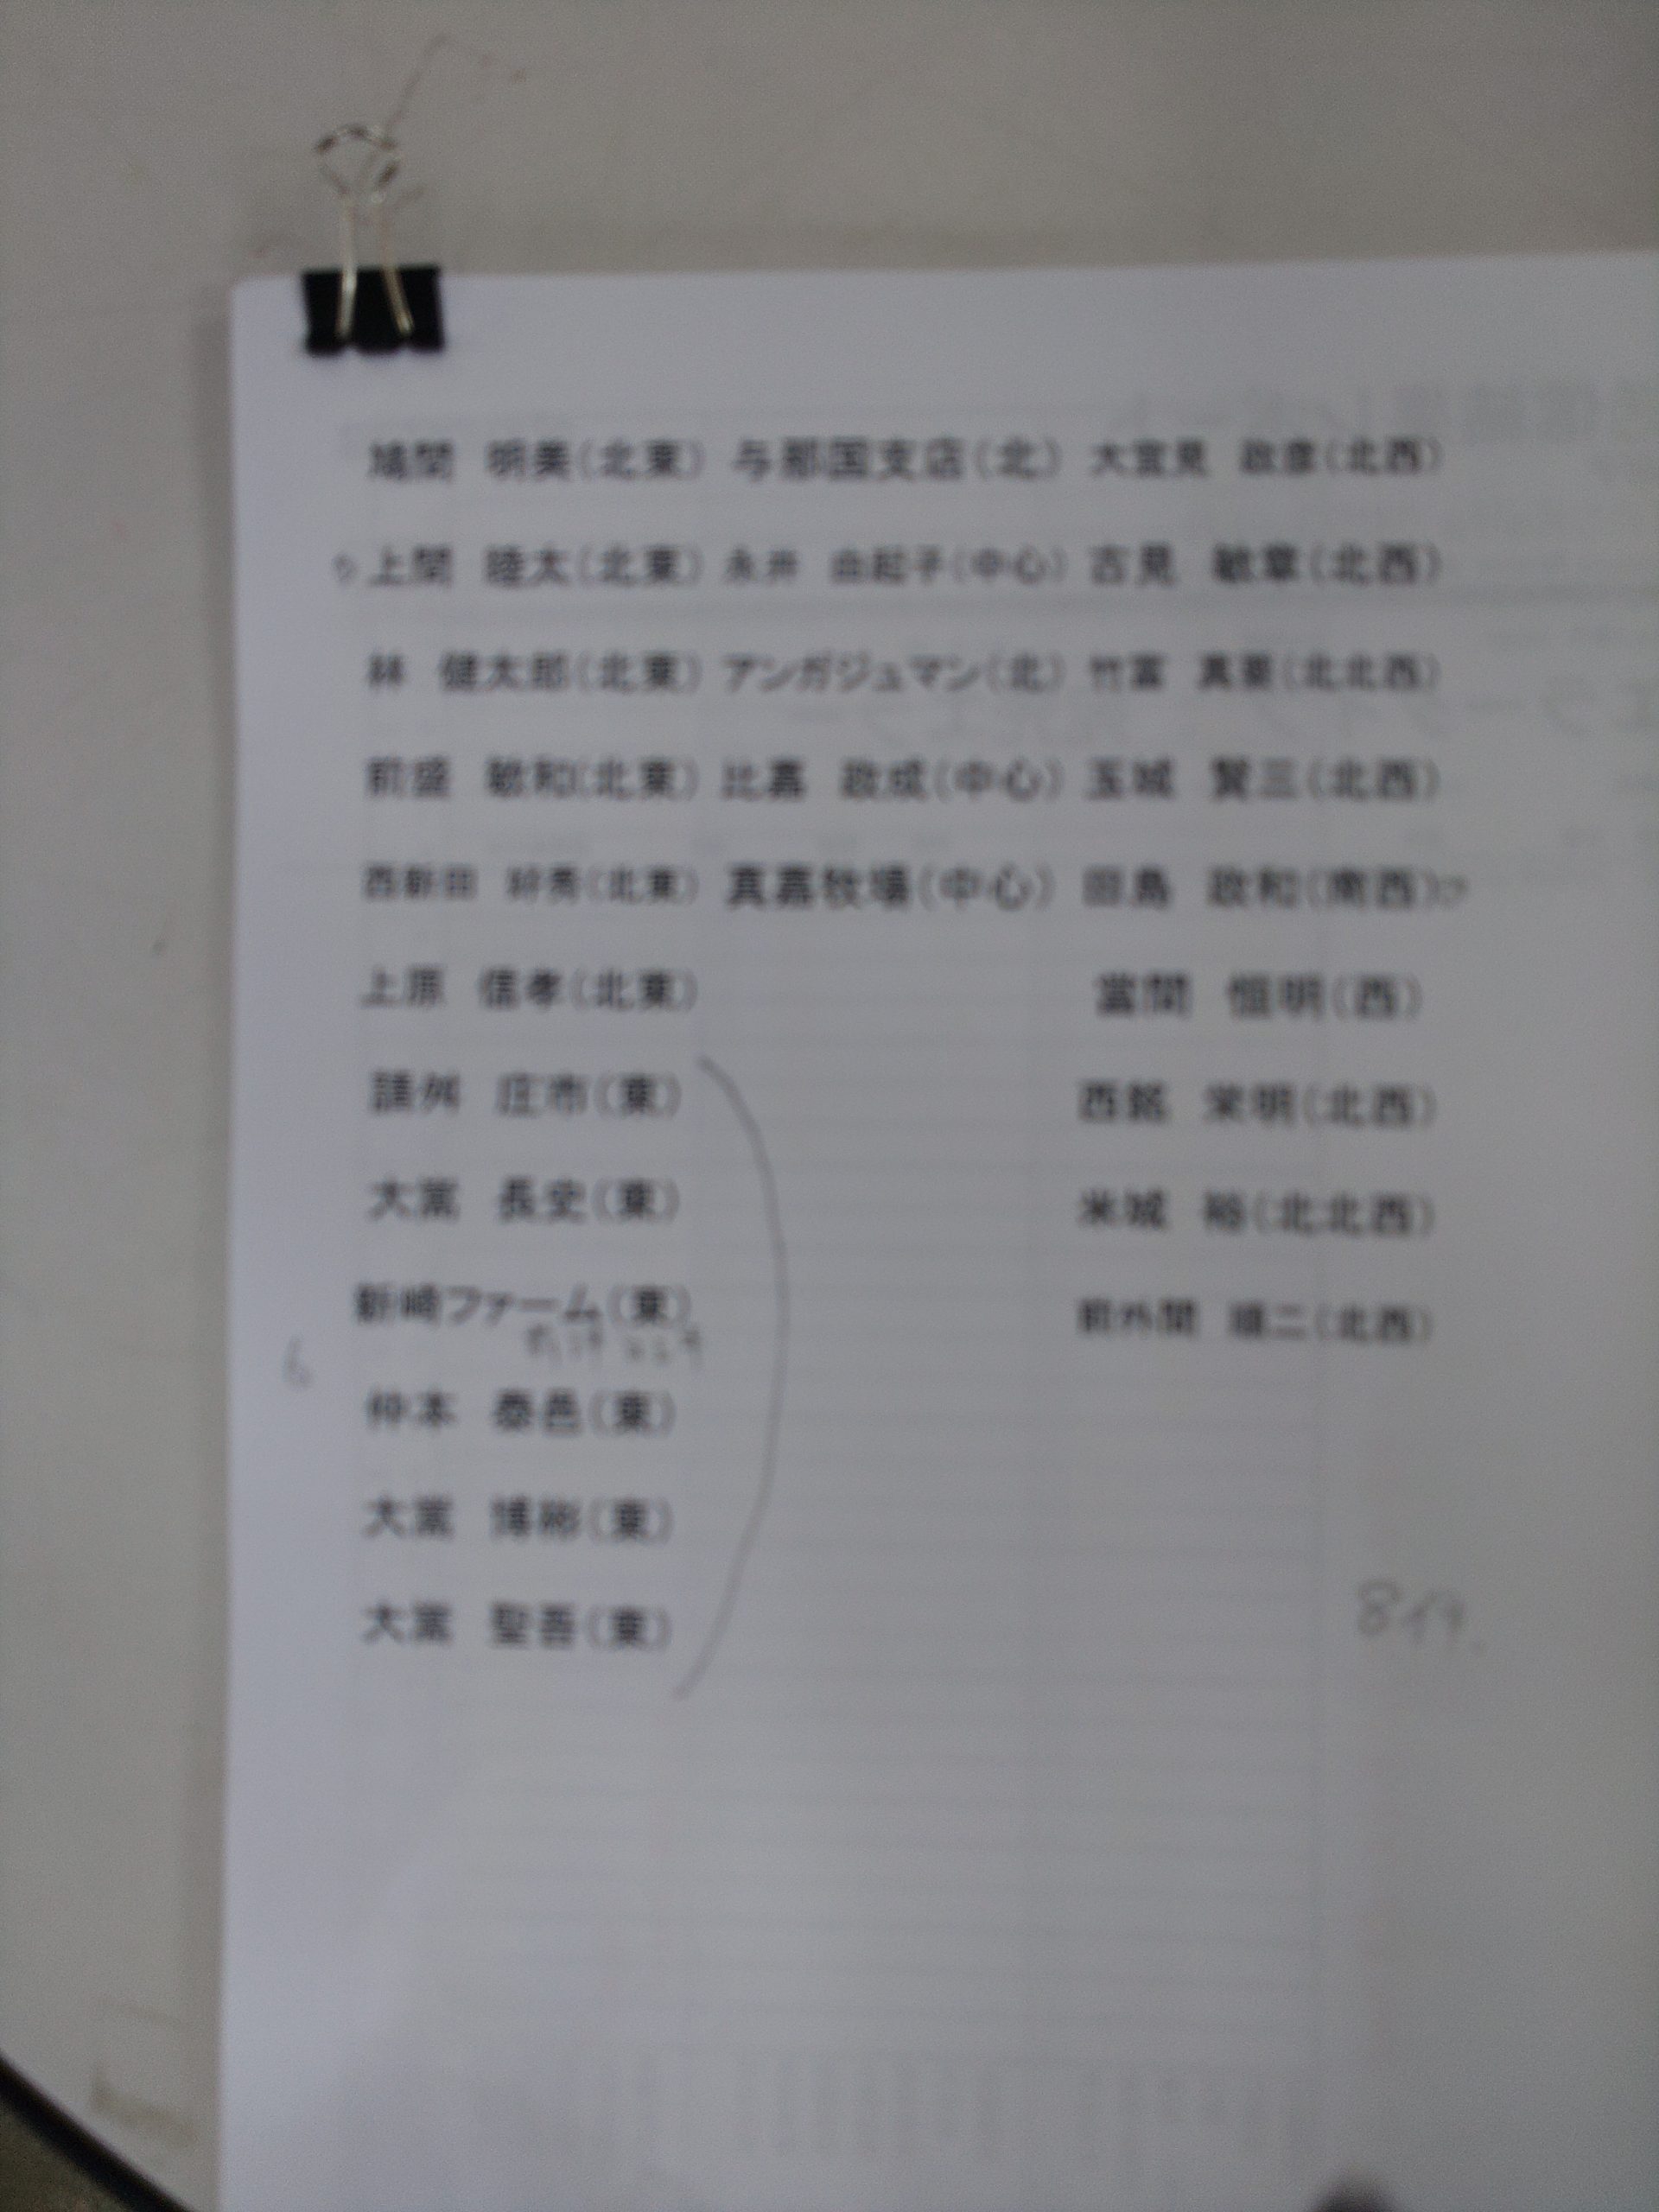 鳩間 明美(北東) 与那国支店(北) 大宜見 政彦(北西)
上間 睦太(北東) 永井 由起子(中心) 吉見 敏章(北西)
林 健太郎(北東) アンガジュマン(北) 竹富 真栗(北北西)
前盛 敏和(北東) 比嘉 政成(中心) 玉城 賢三(北西)
西新田 好秀(北東) 真嘉牧場(中心) 田島 政和(南西)
上原 信孝(北東) 當間 恒明(西)
請舛 庄市(東) 西銘 栄明(北西)
大嵩 長史(東) 米城 裕(北北西)
新崎ファーム(東) 前外間 順二(北西)
仲本 泰邑(東)
大嵩 博彬(東)
大嵩 聖吾(東)
8仔.